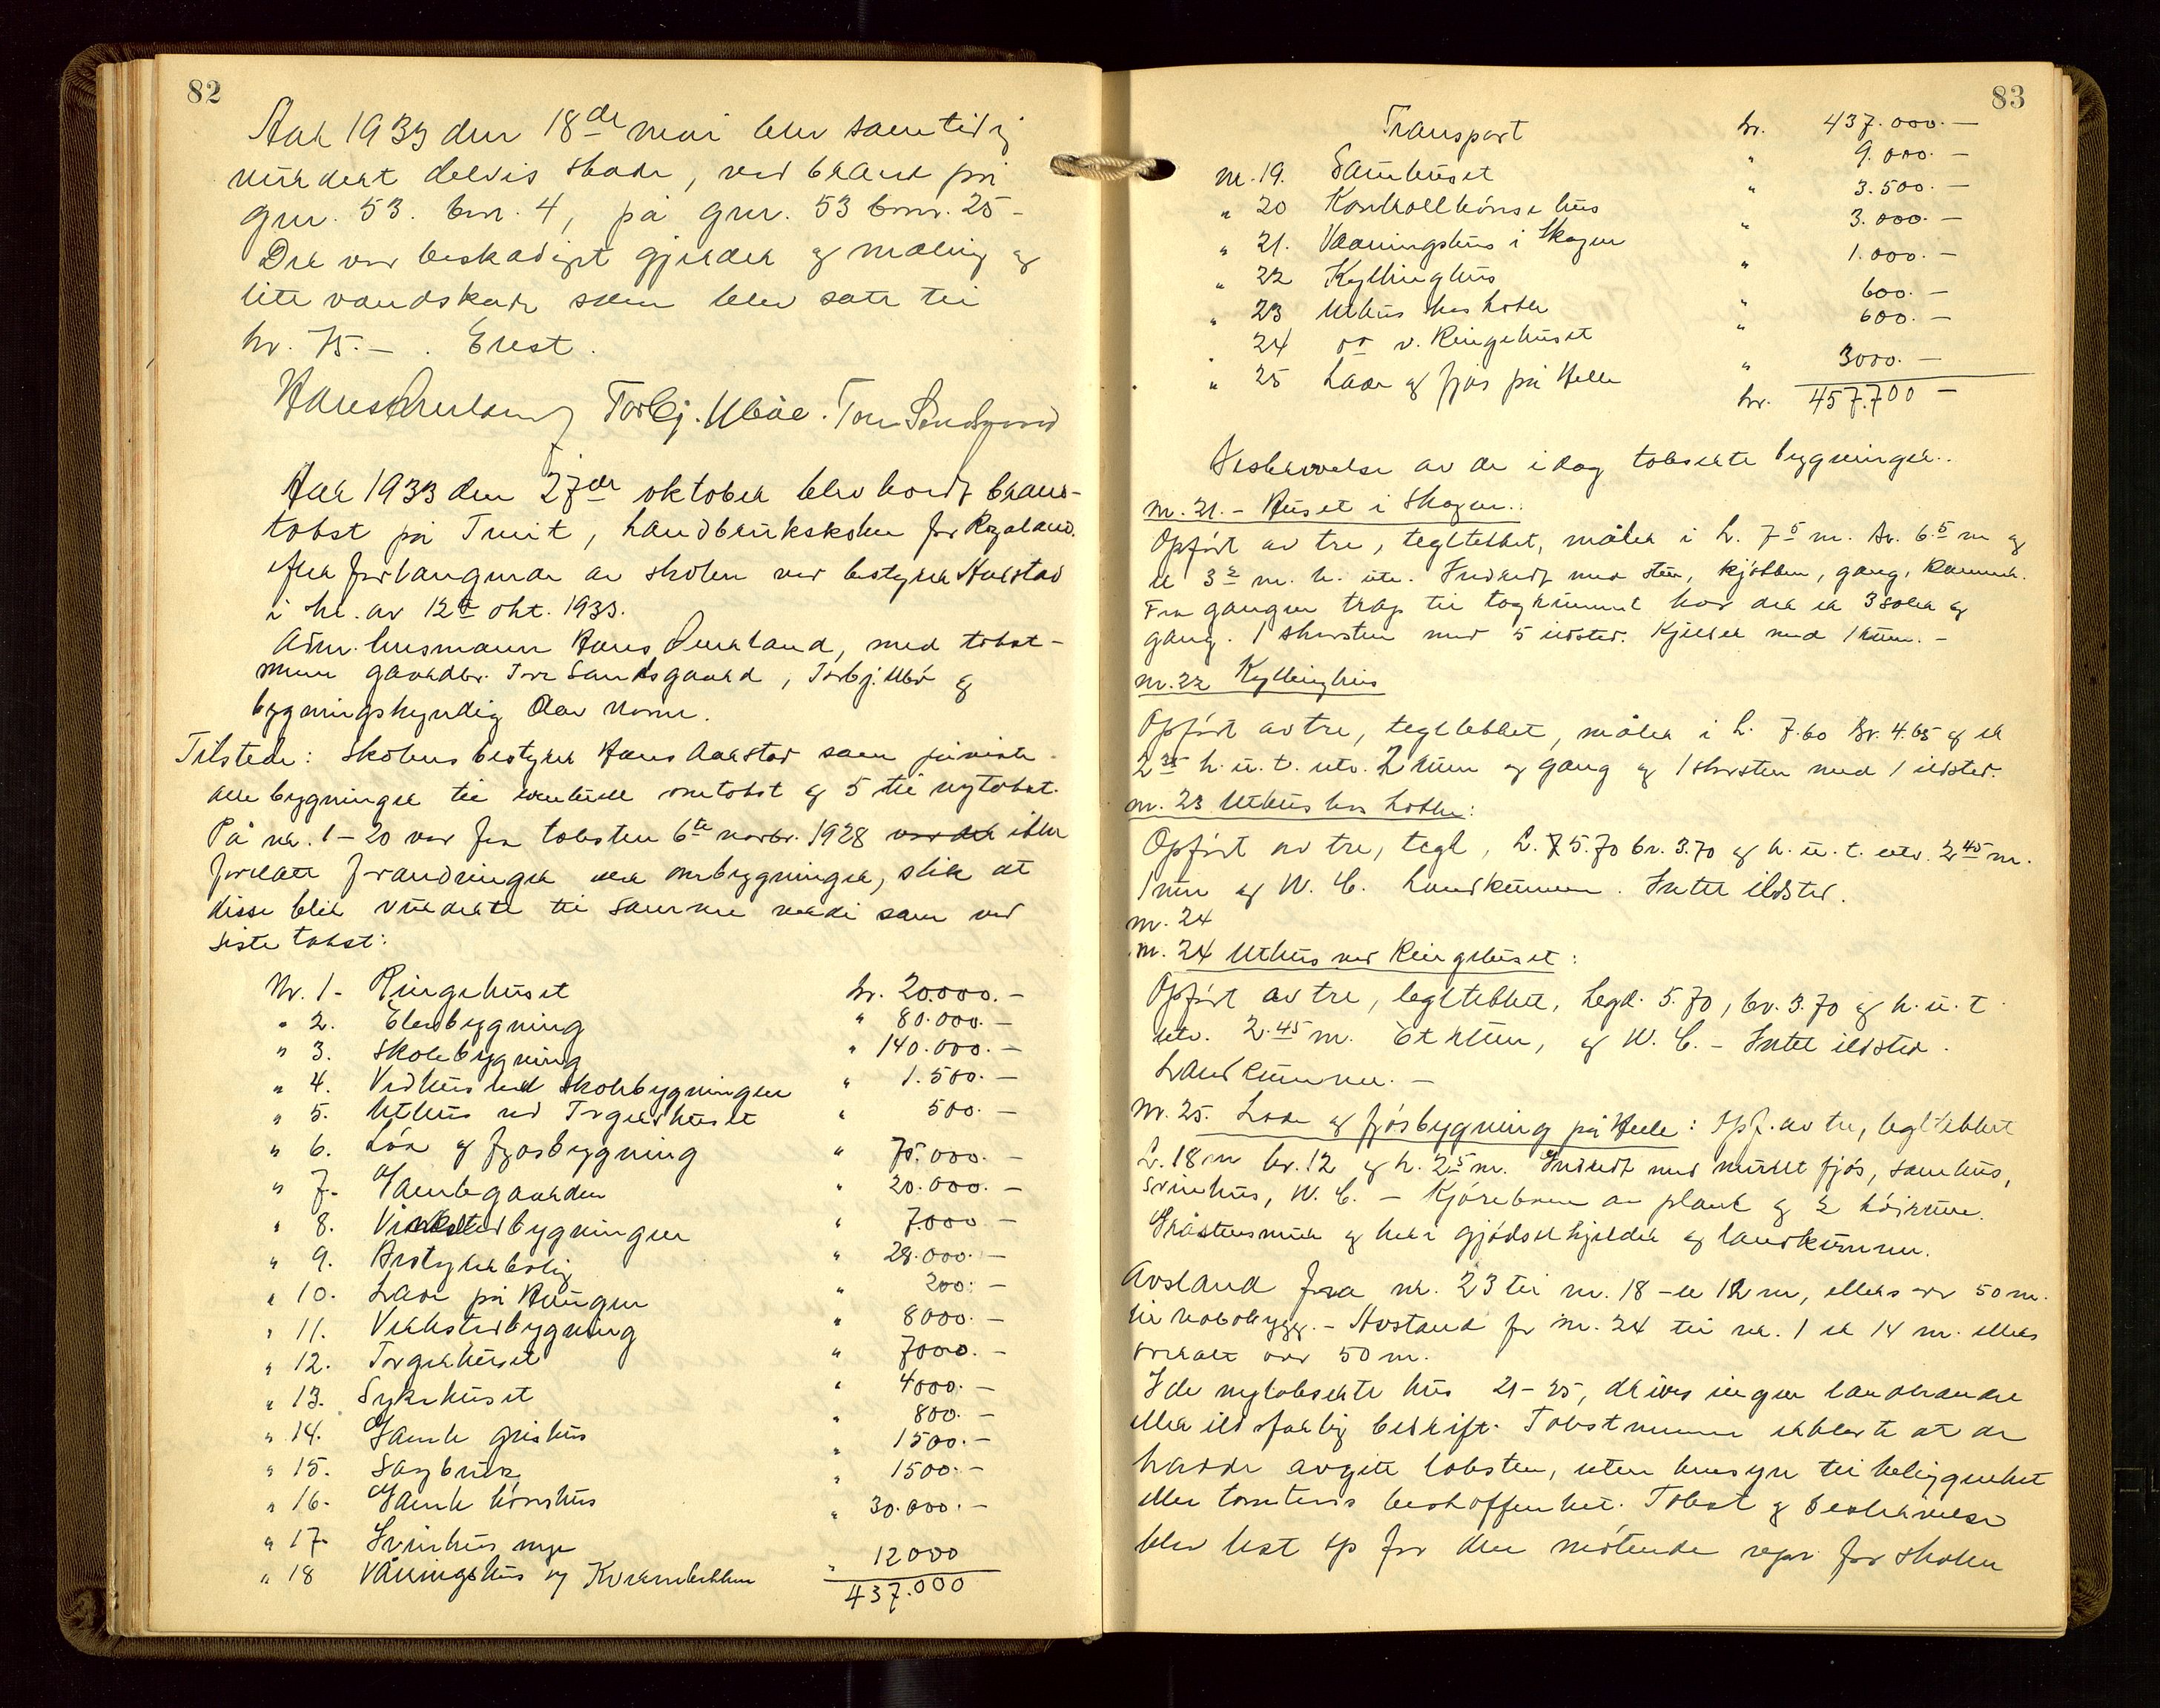 82
Aar 1933 den 18de mai blev samtidig
vurdert delvis skade, ved brand på
gnr. 53. bnr. 4, på gnr. 53 bnr. 25 -
Det var beskadiget gjerder og maling og
lite vandskade som blev satt til
kr. 75.- . Enst.
Torbj. Ubøe. Tore Sandsgaard
Aar 1933 den 27de oktober blev holdt brand-
takst på Tveit, Landbruksskolen for Rogaland.
efter forlangende av skolen ved bestyrer Aarstad
i skr. av 12te okt. 1933.
Adm. lensmann Hans , med takst-
menn gaardbr. Tore Sandsgaard, Torbj. Ubø og
bygningskyndig Olav
Tilstede: Skolens bestyrer Hans Aarstad som påviste
alle bygninger til eventuell omtakst og 5 til nytakst.
På nr. 1-20 var fra taksten 6te novbr. 1928 var det ikke
foretatt forandringer eller ombygninger, slik at
disse blir vurderte til samme verdi som ved
siste takst:
Nr. 1- Ringehuset kr. 20.000.-
" 2. Elevbygning " 80.000.-
" 3. Skolebygning " 140.000.-
" 4. Vedhus ved Skolebygningen " 1.500.-
" 5. Uthus ved Torgerhuset " 500.-
" 6. Løe og fjøsbygning " 75.000.-
" 7- Gamlegaarden " 20.000.-
" 8. bygningen " 7000-
" 9. Bestyrerbolig " 28.000.-
" 10. Lade på Haugen " 200.-
" 11. Verkstedbygning " 8000.-
" 12. Torgerhuset " 7000.-
" 13. Sykehuset " 4000.-
" 14. Gamle grishus " 800.-
" 15. Sagbruk " 1500.-
" 16- Gamle hønshus " 1500.-
" 17- Svinhus nye " 30.000.-
" 18 Våningshus og " 12000
437.000
83
Transport kr. 437.000.-
nr. 19. Samhuset " 9.000.-
" 20 Kontrollhønsehus " 3.500.-
" 21. Vaaningshus i Skogen " 3.000.-
" 22 Kyllinghus " 1.000.-
" 23 Uthus hos Lothe " 600.-
" 24 do v. Ringehuset " 600.-
" 25 Lade og fjøs på Helle " 3000.-
kr. 457.700-
Beskrivelse av de idag takserte bygninger..
nr. 21.- Huset i Skogen.:
Opført av tre, tegltekket, måler i L. 7⁵ m. br. 6.⁵ m og
er 3² m. h. utv. Indredt med stue, kjøkken, gang, kammer.
Fra gangen trap til tagrummet hvor der er 3 soler og
gang. 1 skorsten med 5 ildsted. Kjeller med 1 rum. -
nr. 22 Kyllinghus
Opført av tre, tegltekket, måler i L. 7.60 Br. 4.65 og er
h. u. t. utv. 2 rum og gang og 1 skorsten med 1 ildsted.
nr. 23 Uthus hos Lothe:
Opført av tre, tegl, L. 5.70 br. 3.70 og h. u. t. utv. 2⁴⁵ m.
1 rum og W. C. Landkummen. Intet ildsted.
nr. 24
nr. 24 Uthus ved Ringehuset:
Opført av tre, tegltekket, Legd. 5.70, br. 3.70 og h. u. t
utv. 2.⁴⁵ m. Et rum, og W. C. - Intet ildsted.
Landkummen. -
Nr. 25. Lade og fjøsbygning på Helle: Opf. av tre, tegltekket
L. 18 m br. 12 og h. 2⁵ m. Indredt med muret fjøs, samhus,
svinhus, W. C. - Kjørebane av plank og 2 høirum.
Gråstensmur og hel gjødselkjelder og landkummen.
Avstand fra nr. 23 til nr. 18 - er 12 m, ellers over 50 m.
til nabobygg. - Avstand fr nr. 24 til nr. 1 er 14 m. ellers
overalt over 50 m.
I de nytakserte hus 21-25, drives ingen
eller ildsfarlig bedrift. Takstmennene erklærte at de
hadde avgitt taksten, uten hensyn til beliggenhet
eller tomtens beskaffenhet. Takst og beskrivelse
blev lest op for den møtende repr for skolen